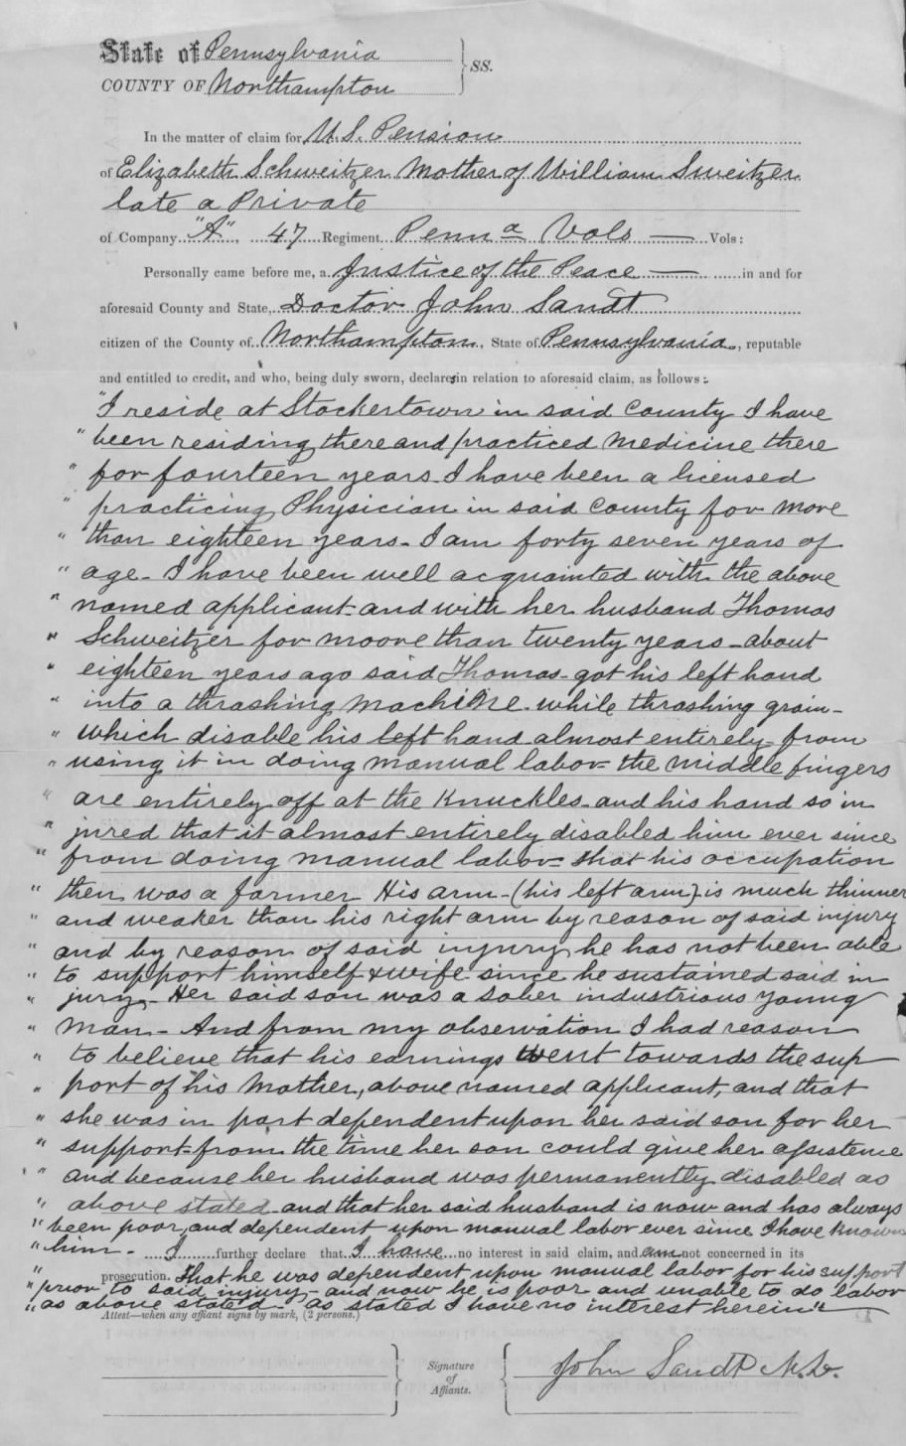 State of Pennsylvania
COUNTY OF Northampton } SS.
In the matter of claim for U.S. Pension
of Elizabeth Schweitzer Mother of William Sweitzer
late a Private
of Company "A", 47 Regiment Penna Vols — Vols:
Personally came before me, a Justice of the Peace — in and for
aforesaid County and State, Doctor John Sandt
citizen of the County of Northampton, State of Pennsylvania, reputable
and entitled to credit, and who, being duly sworn, declares in relation to aforesaid claim, as follows:
"I reside at Stockertown in said County I have
" been residing there and practiced medicine there
" for fourteen years. I have been a licensed
" practicing Physician in said County for more
" than eighteen years - I am forty seven years of
" age - I have been well acquainted with the above
" named applicant and with her husband Thomas
" Schweitzer for moore than twenty years - about
" eighteen years ago said Thomas got his left hand
" into a thrashing machine while thrashing grain -
" which disable his left hand almost entirely from
" using it in doing manual labor - the middle fingers
" are entirely off at the Knuckles and his hand so in
" jured that it almost entirely disabled him ever since
" from doing manual labor - that his occupation
" then was a farmer His arm - (his left arm) is much thinner
" and weaker than his right arm by reason of said injury
" and by reason of said injury he has not been able
" to support himself & wife since he sustained said in
" jury - Her said son was a sober industrious young
" man - And from my observation I had reason
" to believe that his earnings went towards the sup
" port of his Mother, above named applicant, and that
" she was in part dependent upon her said son for her
" support from the time her son could give her assistence
" and because her husband was permanently disabled as
" above stated and that her said husband is now and has always
" been poor and dependent upon manual labor ever since I have known
" him - I further declare that I have no interest in said claim, and am not concerned in its
" prosecution. That he was dependent upon manual labor for his support
" prior to said injury - and now he is poor and unable to do labor
" as above stated - as stated I have no interest herein"
Attest—when any affiant signs by mark, (2 persons.)
Signature
of
Affiants.
John Sandt M.D.